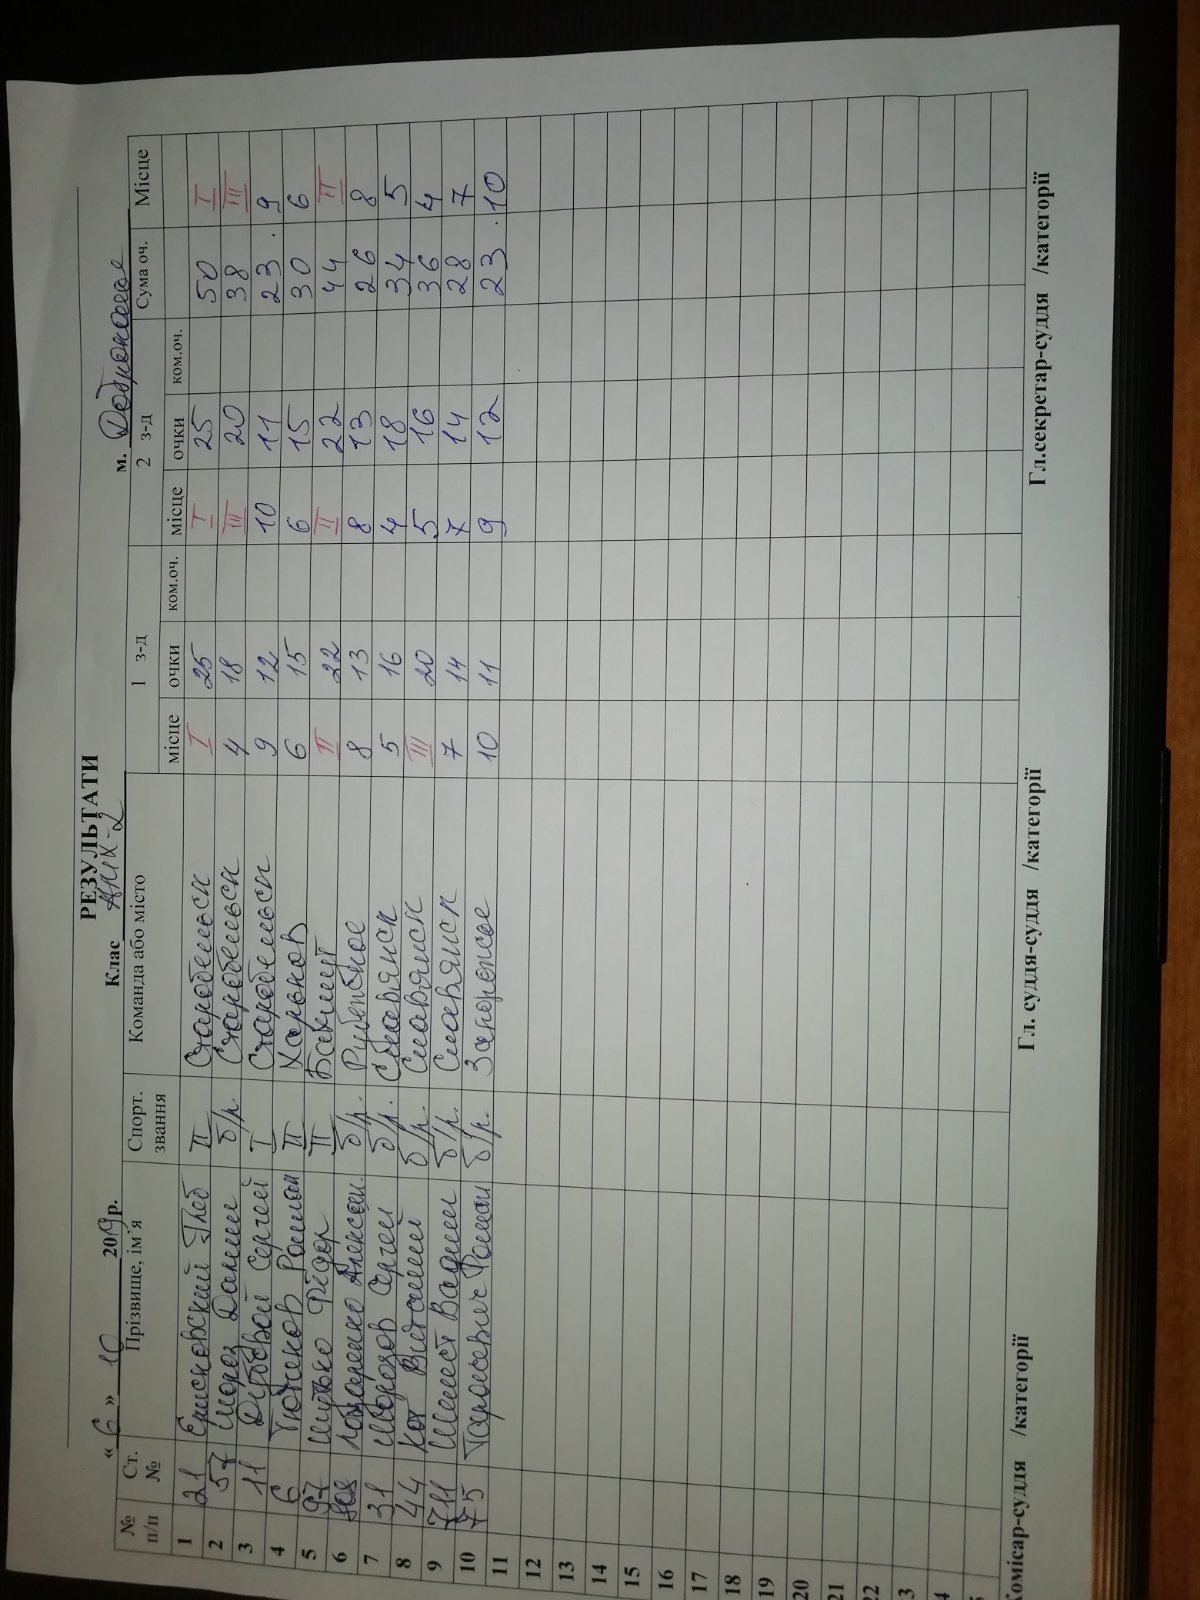 РЕЗУЛЬТАТИ
« 6 » 10 2019р. Клас м. Доброполье
№ п/п Ст. № Прізвище, ім'я Спорт. звання Команда або місто 1 з-д 2 з-д Сума оч. Місце
місце очки ком.оч. місце очки ком.оч.
1 21 Глеб II Старобельск I 25 I 25 50 I
2 57 Мороз Данил б/р. Старобельск 4 18 III 20 38 III
3 11 Дубовой Сергей I Старобельск 9 12 10 11 23. 9
4 6 Роман II Харьков 6 15 6 15 30 6
5 97 Фёдор II Бахмут II 22 II 22 44 II
6 б/р. Рубежное 8 13 8 13 26 8
7 31 Морозов Сергей б/р. Славянск 5 16 4 18 34 5
8 44 Кот Виталий б/р. Славянск III 20 5 16 36 4
9 711 Шелест Вадим б/р. Славянск 7 14 7 14 28 7
10 75 Тарасевич Роман б/р. Запорожье 10 11 9 12 23. 10
11
12
13
14
15
16
17
18
19
20
21
22
3
4
5
Комісар-суддя /категорії Гл. суддя-суддя /категорії Гл.секретар-суддя /категорії